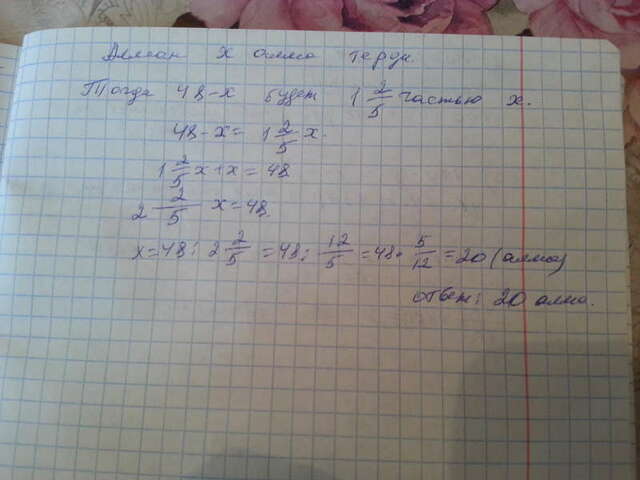 Алман x алма терди.
Тогда 48-x будет 1 2/5 частью x.
48-x = 1 2/5 x.
1 2/5 x + x = 48
2 2/5 x = 48.
x = 48 : 2 2/5 = 48 : 12/5 = 48 · 5/12 = 20 (алма)
ответ: 20 алма.